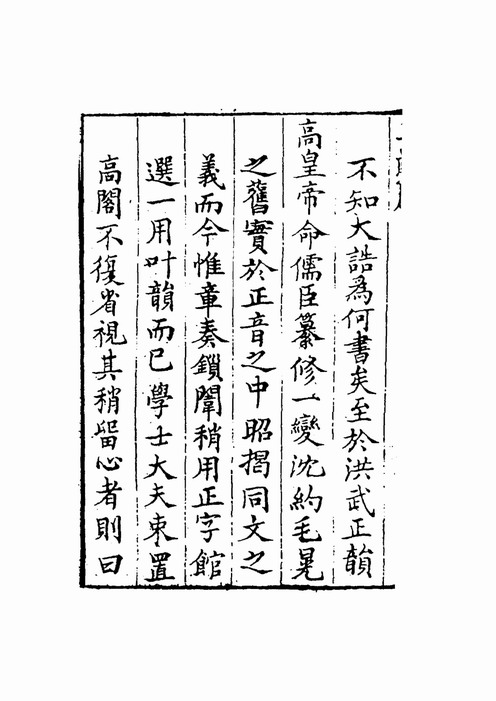 不知大誥爲何書矣至於洪武正韻
高皇帝命儒臣纂修一變沈約毛晃
之舊實於正音之中昭揭同文之
義而今惟章奏鎖闈稍用正字館
選一用叶韻而已學士大夫束置
高閣不復省視其稍留心者則曰